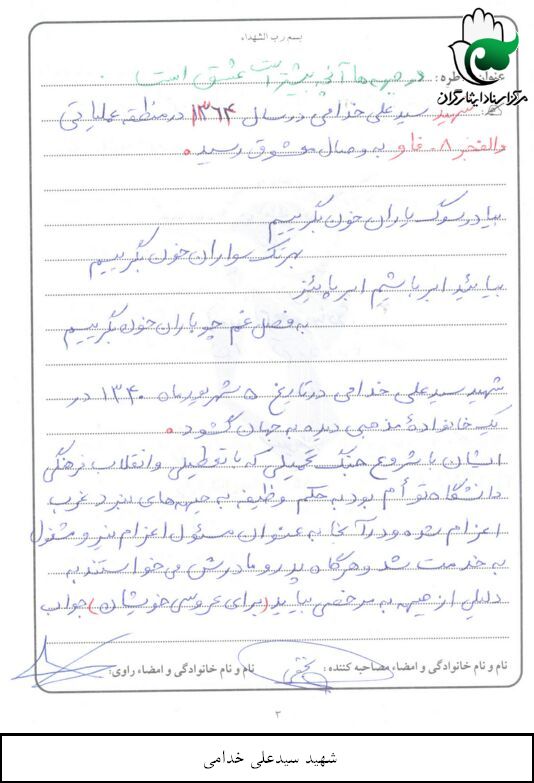 بسم رب الشهداء
عنوان خاطره: در جبهه‌ها آنچه بیشتر است عشق است.
مرکز اسناد ایثارگران
شهید سیدعلی خدامی در سال ۱۳۶۴ در منطقه عملیاتی
والفجر ۸ - فاو به وصال معشوق رسید.
بیا در سوگ یاران خون بگرییم
بر تک سواران خون بگرییم
بیائید ابر باشیم ابر پائیز
به فصل غم چو باران خون بگرییم
شهید سیدعلی خدامی در تاریخ ۵ شهریور ماه ۱۳۴۰ در
یک خانوادهٔ مذهبی دیده به جهان گشود.
ایشان با شروع جنگ تحمیلی که با تعطیلی و انقلاب فرهنگی
دانشگاه توأم بود به حکم وظیفه به جبهه‌های نبرد غرب
اعزام شد و در آنجا به عنوان مسئول اعزام نیرو مشغول
به خدمت شد و هرگاه پدر و مادرش می‌خواستند به
دلیلی از جبهه به مرخصی بیاید (برای عروسی خویشان) جواب
نام و نام خانوادگی و امضاء مصاحبه کننده:
نام و نام خانوادگی و امضاء راوی:
۳
شهید سیدعلی خدامی